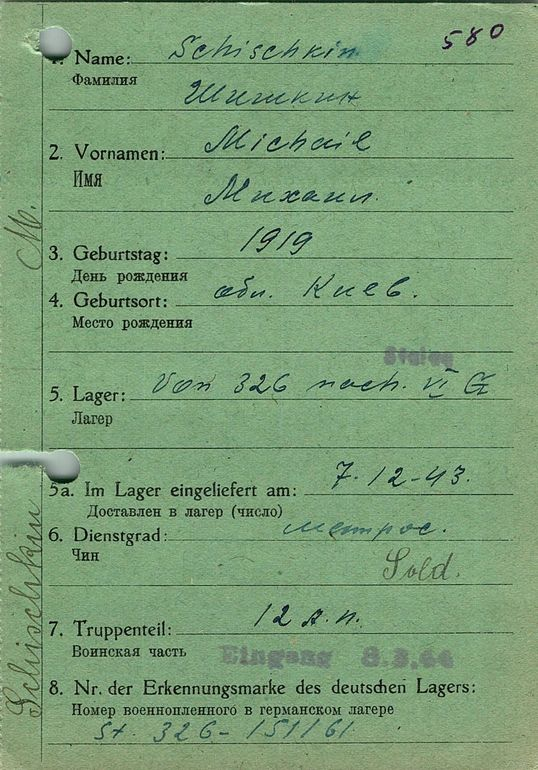 580
1. Name: Schischkin
Фамилия
Шишкин
2. Vornamen: Michail
Имя
Михаил.
M.
3. Geburtstag: 1919
День рождения
4. Geburtsort: обл. Киев.
Место рождения
Stalag
5. Lager: von 326 nach. VI G
Лагер
5a. Im Lager eingeliefert am: 7.12-43.
Доставлен в лагер (число)
6. Dienstgrad: матрос.
Чин
Sold.
7. Truppenteil: 12 п.
Воинская часть
Eingang 8.3.44
8. Nr. der Erkennungsmarke des deutschen Lagers:
Номер военнопленного в германском лагере
St. 326-151161
Schischkin